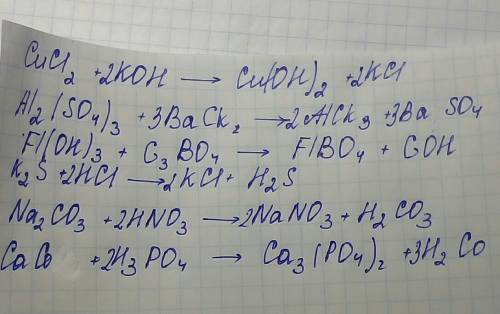 CuCl₂ +2KOH → Cu(OH)₂ +2KCl
Al₂(SO₄)₃ +3BaCk₂ → 2AlCk₃ +3Ba SO₄
Fl(OH)₃ + G₃BO₄ → FlBO₄ + GOH
K₂S +2HCl → 2KCl + H₂S
Na₂CO₃ +2HNO₃ → 2NaNO₃ + H₂CO₃
CaCo +2H₃PO₄ → Ca₃(PO₄)₂ +3H₂Co